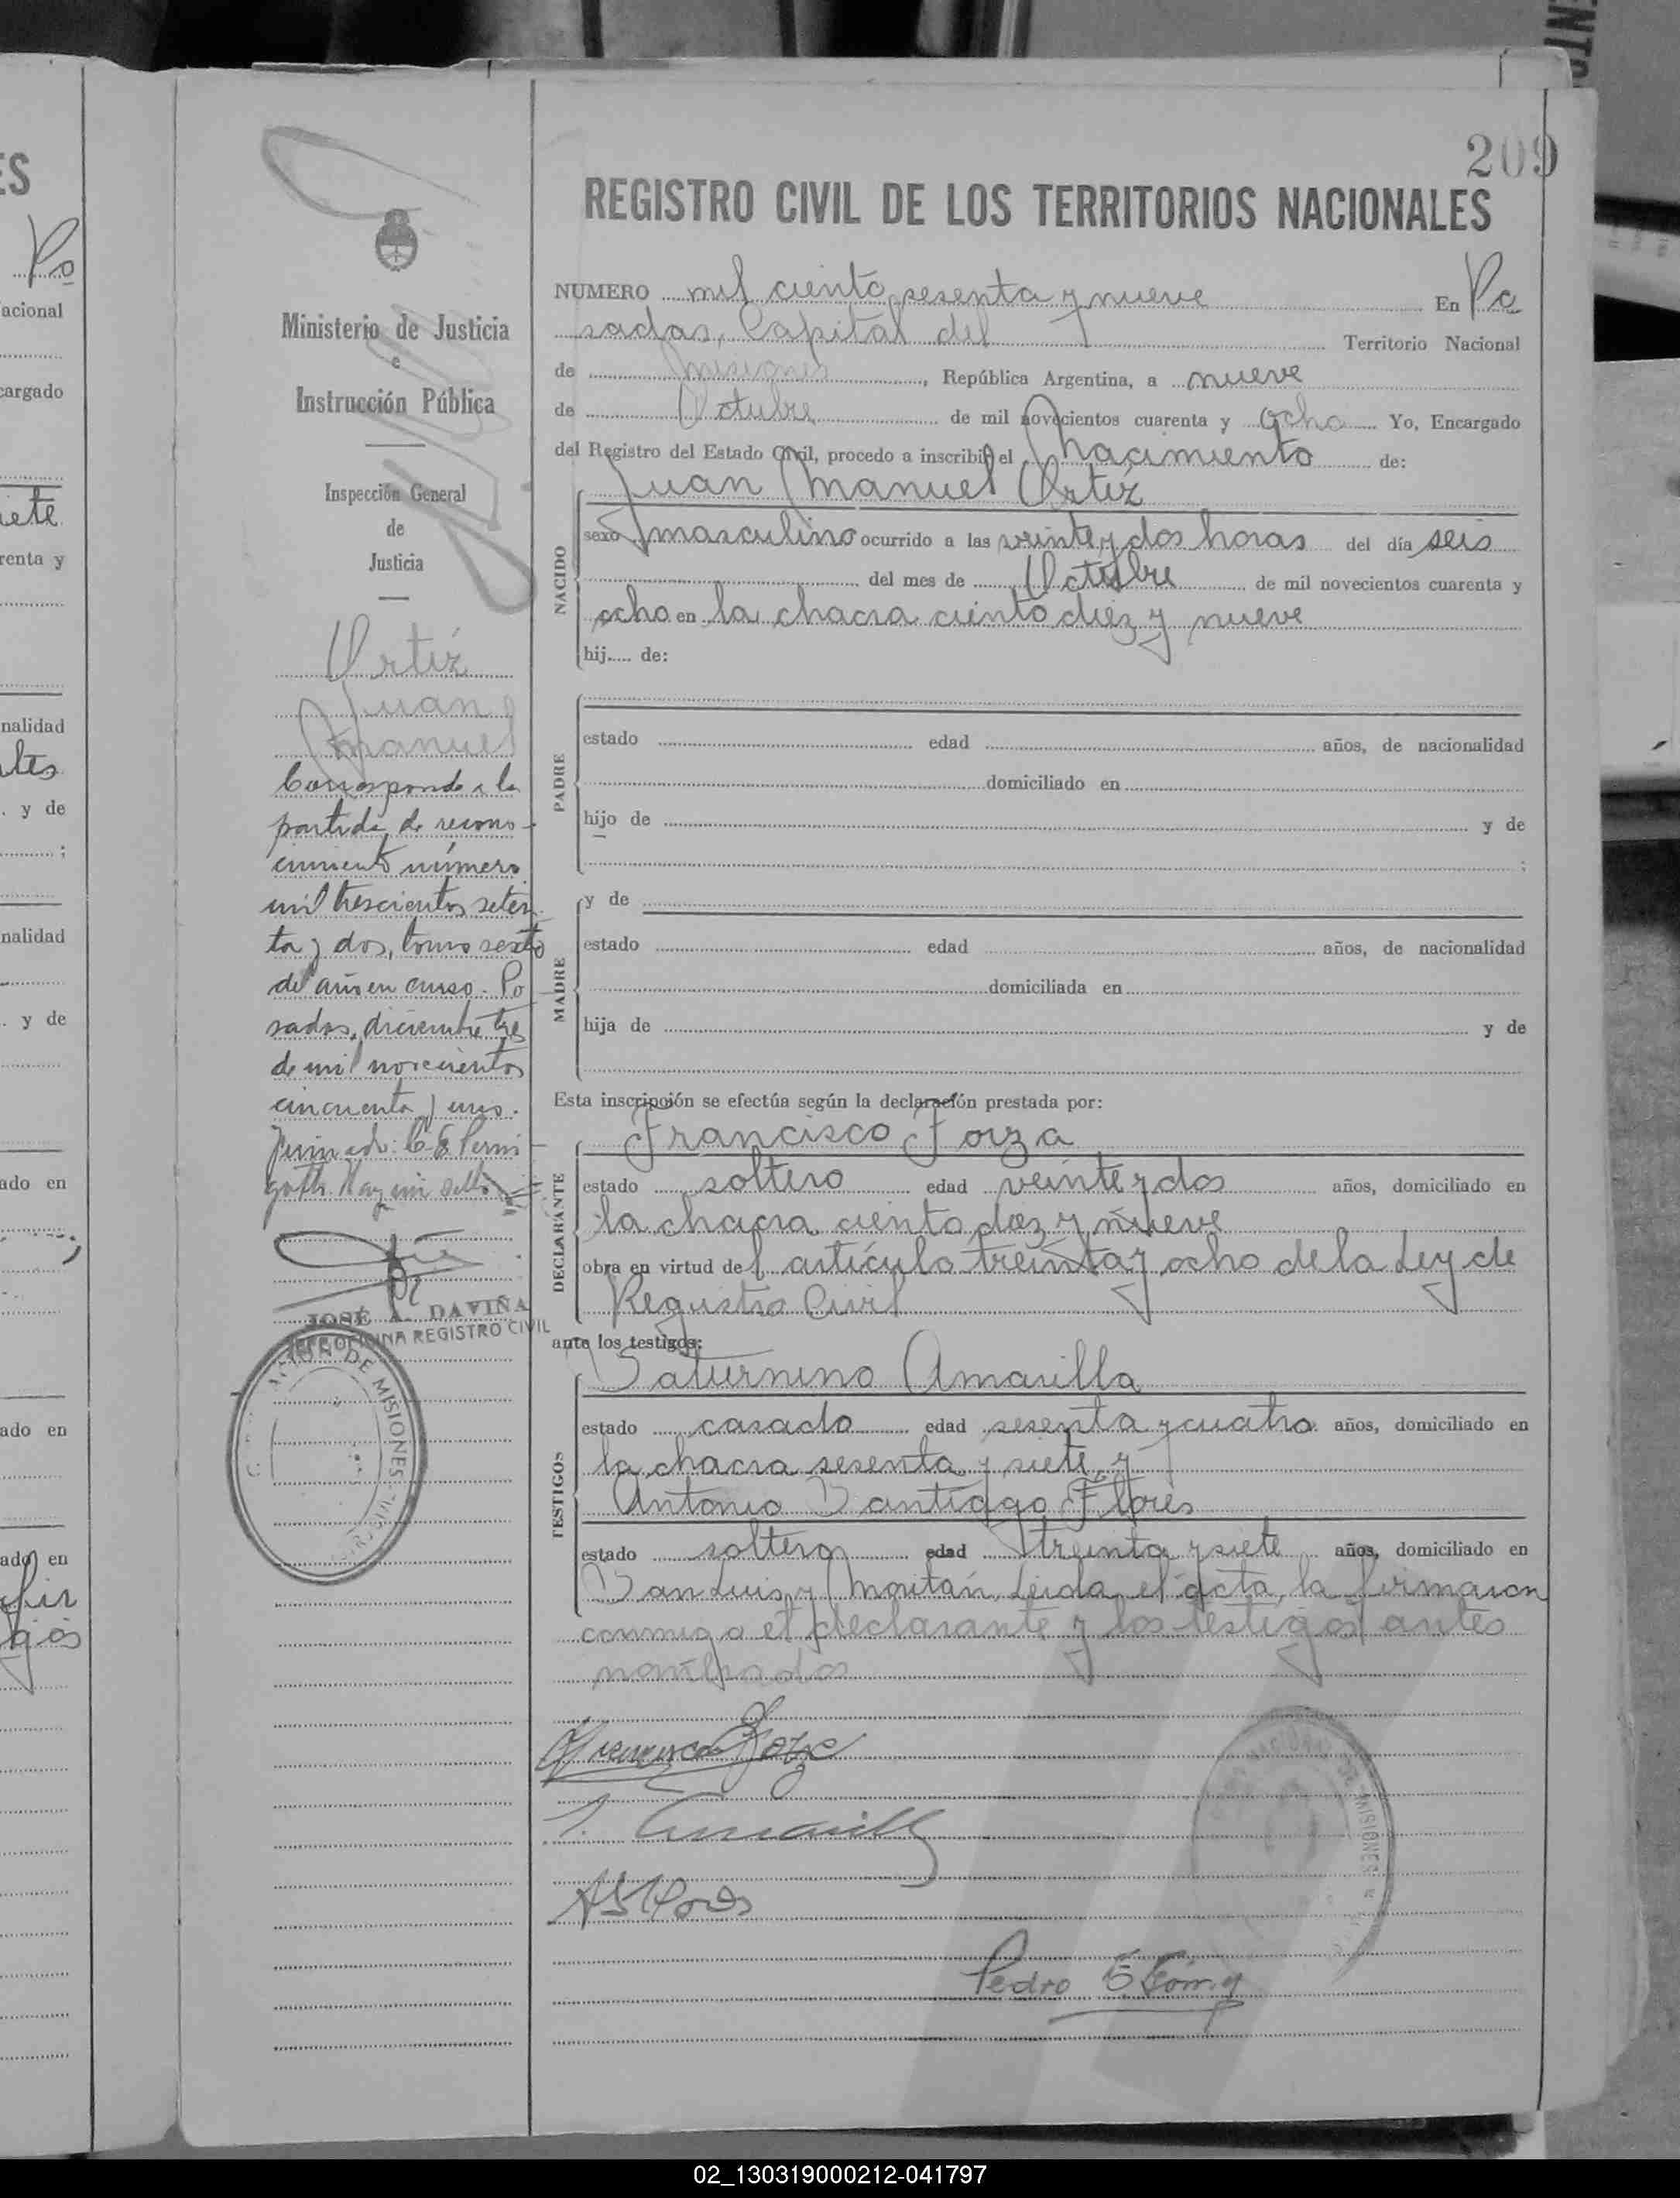 209
REGISTRO CIVIL DE LOS TERRITORIOS NACIONALES
NUMERO mil ciento sesenta y nueve En Po
sadas, Capital del Territorio Nacional
de Misiones, República Argentina, a nueve
de Octubre de mil novecientos cuarenta y ocho Yo, Encargado
del Registro del Estado Civil, procedo a inscribir el nacimiento de:
Juan Manuel Ortiz
NACIDO
sexo masculino ocurrido a las veinte y dos horas del día seis
del mes de Octubre de mil novecientos cuarenta y
ocho en la chacra ciento diez y nueve
hij..... de:
PADRE
estado edad años, de nacionalidad
domiciliado en
hijo de y de
;
MADRE
y de
estado edad años, de nacionalidad
domiciliada en
hija de y de
Esta inscripción se efectúa según la declaración prestada por:
Francisco Forza
DECLARANTE
estado soltero edad veinte y dos años, domiciliado en
la chacra ciento diez y nueve
obra en virtud del artículo treinta y ocho de la Ley de
Registro Civil
ante los testigos:
Saturnino Amarilla
TESTIGOS
estado casado edad sesenta y cuatro años, domiciliado en
la chacra sesenta y siete, y
Antonio Santiago Flores
estado soltero edad treinta y siete años, domiciliado en
San Luis y Moritán, Leida el acta, la firmaron
conmigo el declarante y los testigos antes
nombrados
Francisco Forza
S. Amarilla
A S Flores
Pedro E
Ministerio de Justicia
e
Instrucción Pública
Inspección General
de
Justicia
Ortiz
Juan
Manuel
Corresponde a la
partida de recono-
cimiento número
mil trescientos seten
ta y dos, tomo sexto
del año en curso. Po
sadas, diciembre tres
de mil novecientos
cincuenta y uno.
Firmado: C. E. Perni
gotti. Hay un sello
JOSÉ A. DAVIÑA
JEFE OFICINA REGISTRO CIVIL
DE MISIONES
MISIONES
ES
Po
acional
cargado
iete
renta y
nalidad
ltes
. y de
;
nalidad
. y de
ado en
ado en
ado en
fir
gos
02_130319000212-041797